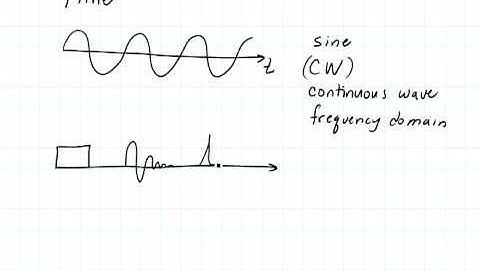 t
sine
(CW)
continuous wave
frequency domain